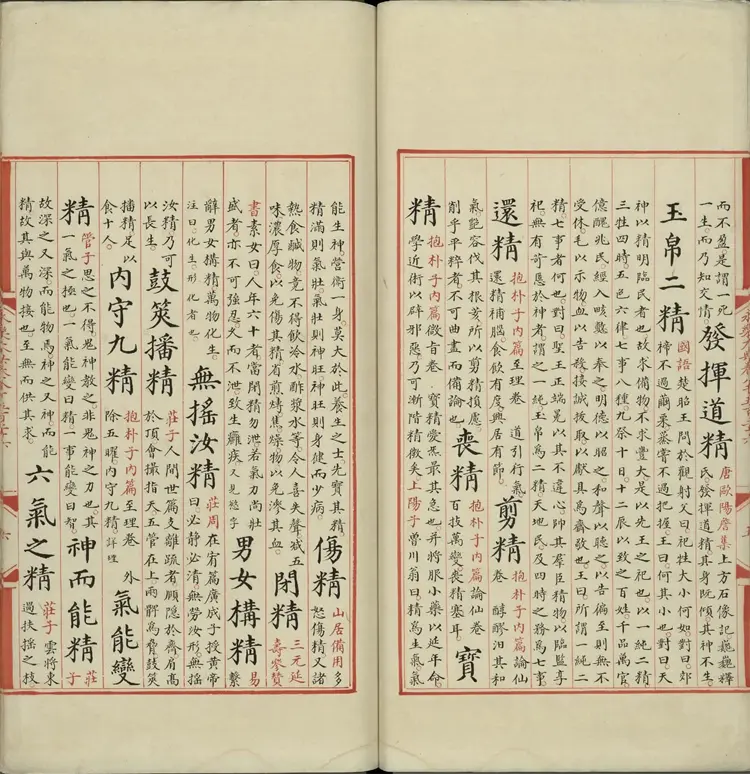 而不盈是謂一死
一生而乃知交情
發揮道精
唐歐陽詹集上方石像記巍巍釋
氏發揮道精其身既傾其神不生
玉帛二精
國語楚昭王問於觀射父曰祀牲大小何如對曰郊
禘不過繭栗蒸嘗不過把握王曰何其小也對曰夫
神以精明臨民者也故求備物不求豐大是以先王之祀也以一純二精
三牲四時五色六律七事八種九祭十日十二辰以致之百姓千品萬官
億醜兆民經入畡數以奉之明德以昭之和聲以聽之以告徧至則無不
受休毛以示物血以告殺接誠拔取以獻具為齊敬也王曰所謂一純二
精七事者何也對曰聖王正端冕以其不違心帥其羣臣精物以臨監享
祀無有苛慝於神者謂之一純玉帛為二精天地民及四時之務為七事
還精
抱朴子内篇至理卷 道引行氣
還精補腦食飲有度興居有節
剪精
抱朴子内篇論仙
卷 醇醪汨其和
氣艷容伐其根荄所以剪精損慮
削乎平粹者不可曲盡而備論也
喪精
抱朴子内篇論仙卷
百技萬變喪精塞耳
寶
精
抱朴子内篇微旨卷 寶精愛炁最其急也并將服小藥以延年命
學近術以辟邪惡乃可漸階精微矣上陽子曾川翁曰精為生氣氣
能生神營衛一身莫大於此養生之士先寶其精
精滿則氣壯氣壯則神旺神旺則身健而少病
傷精
山居備用多
怒傷精又諸
熱食鹹物竟不得飲冷水酢漿水等令人喜失聲减五
味濃厚食以免傷其精省煎煿焦燥物以免滲其血
閉精
三元延
壽參贊
書素女曰人年六十者當閉精勿泄若氣力尚壯
盛者亦不可強忍久而不泄致生癰疾又見慾字
男女構精
易
繫
辭男女搆精萬物化生
注曰化生形化者也
無摇汝精
莊周在宥篇廣成子授黄帝
曰必静必清無勞汝形無摇
汝精乃可
以長生
鼓筴播精
莊子人間世篇支離疏者頤隱於齊肩高
於頂會撮指天五管在上兩髀為脅鼓筴
播精足以
食十人
内守九精
抱朴子内篇至理卷 外
除五曜内守九精詳理
氣能變
精
管子思之不得鬼神教之非鬼神之力也其
一氣之極也一氣能變曰精一事能變曰智
神而能精
莊
子
故深之又深而能物焉神之又神而能
精故其與萬物接也至無而供其求
六氣之精
莊子雲將東
過扶摇之枝